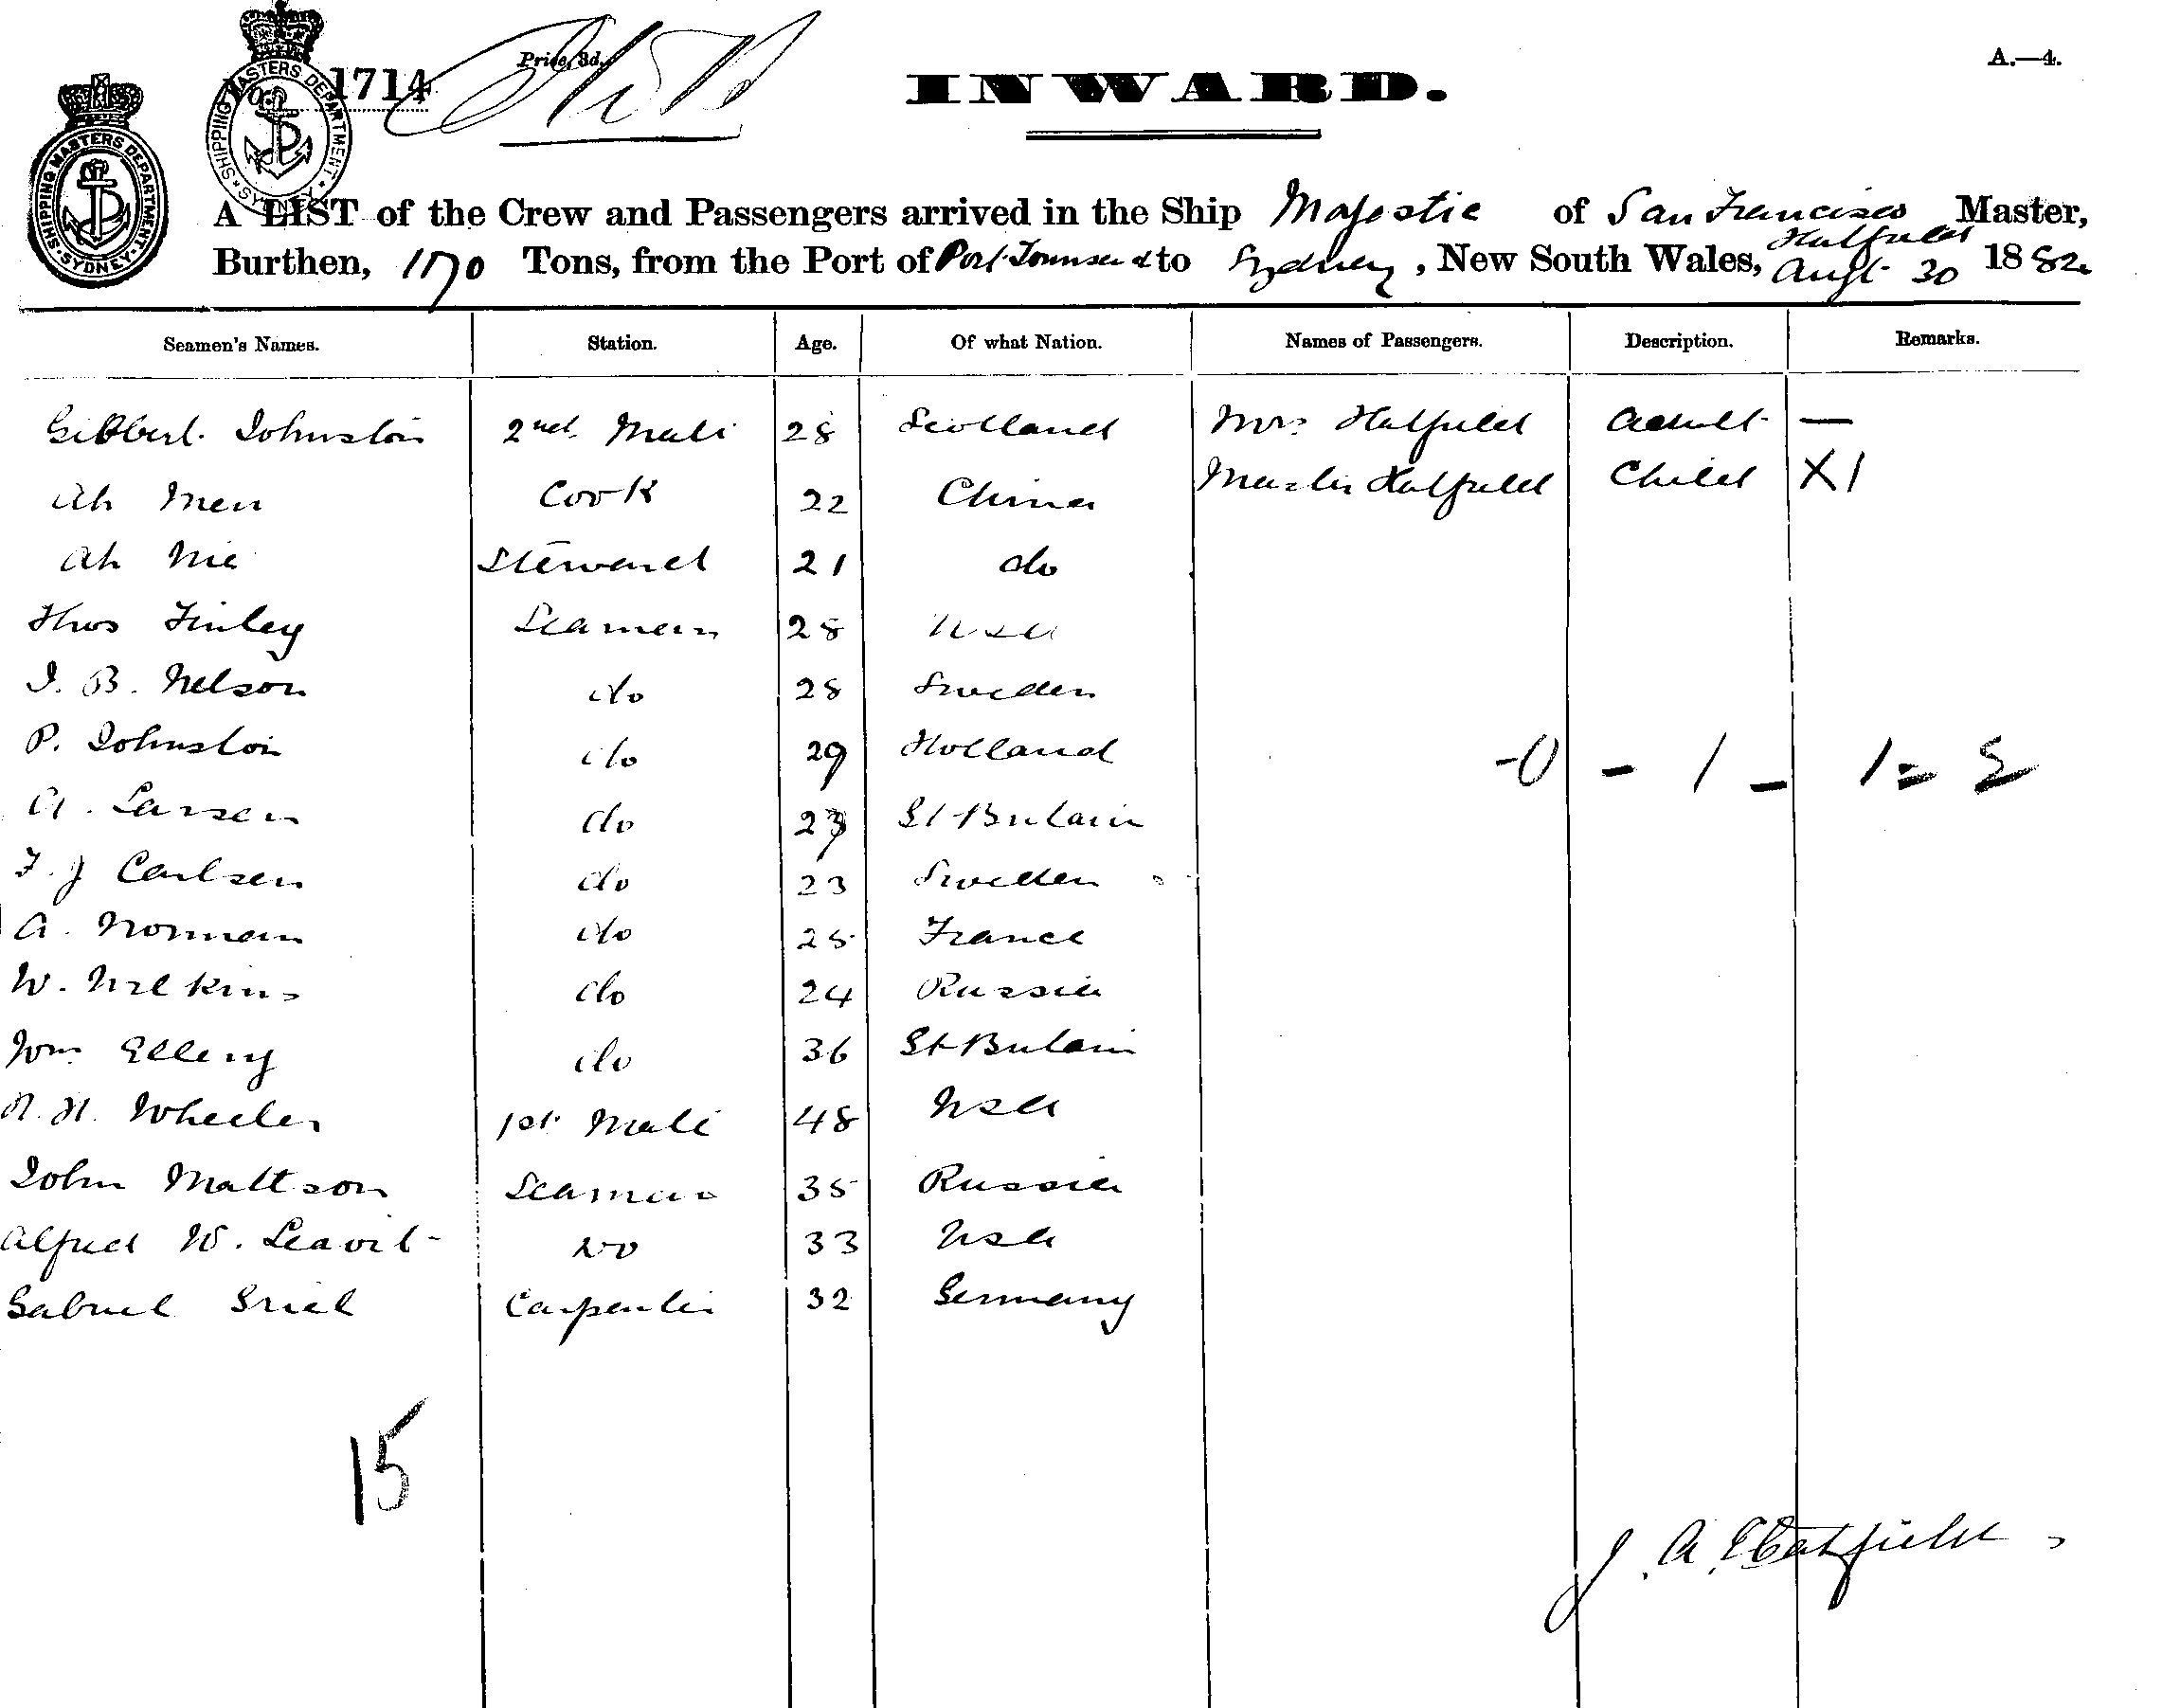 A.—4.
1714 Price, 3d.
INWARD.
SHIPPING MASTERS DEPARTMENT SYDNEY
SHIPPING MASTERS DEPARTMENT SYDNEY
A LIST of the Crew and Passengers arrived in the Ship Majestic of San Francisco Master, Hatfield
Burthen, 1170 Tons, from the Port of Port Townsend to Sydney, New South Wales, Augt 30 1882
Seamen's Names. Station. Age. Of what Nation. Names of Passengers. Description. Remarks.
Johnston 2nd Mate 28 Scotland Mrs Hatfield Adult —
Ah Men Cook 22 China Master Hatfield Child X1
Ah Steward 21 do
Thos Finley Seaman 28 USA
J. B. Nelson do 28 Sweden
P. Johnston do 29 Holland -0 - 1 - 1 = 2
A. Larsen do Gt Britain
F. J Carlsen do 23 Sweden
A. Norman do 25 France
W. Wilkins do 24 Russia
Wm Ellery do 36 Gt Britain
H. Wheeler 1st Mate 48 USA
John Mattson Seaman 35 Russia
Alfred W. Leavit Do 33 USA
Gabriel Carpenter 32 Germany
15
J. A. Hatfield